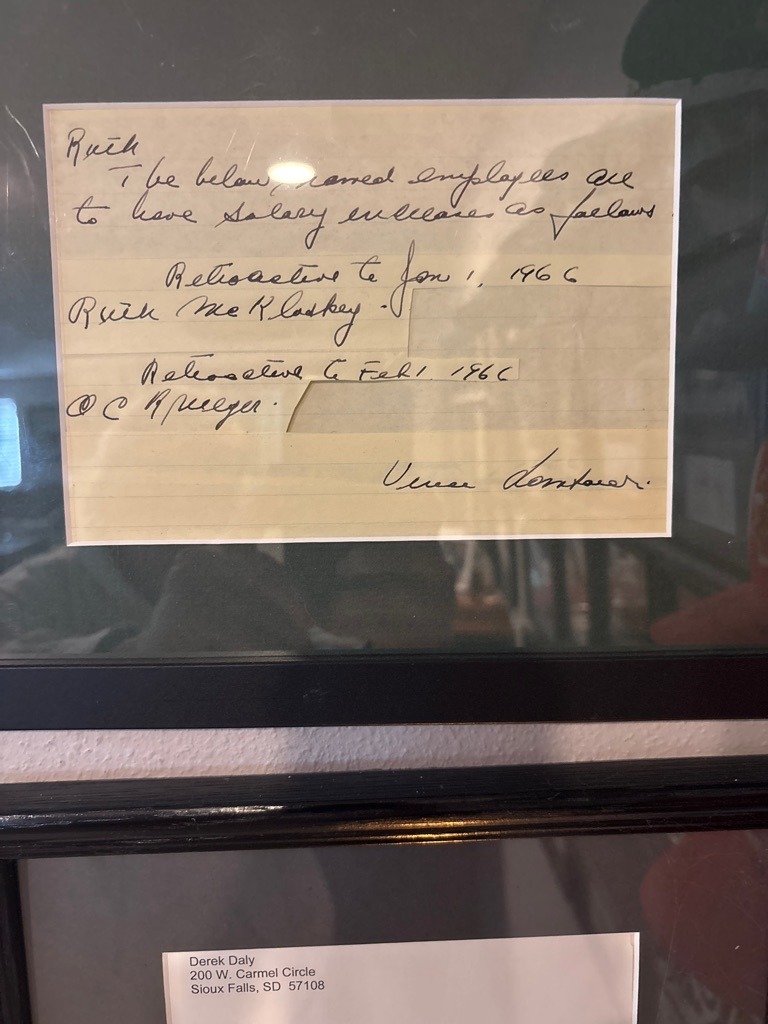 Ruth
The below named employees are
to have salary increases as follows
Retroactive to Jan 1, 1966
Ruth McKloskey.
Retroactive to Feb 1 1966
O C Krueger.
Vince Lombardi.
Derek Daly
200 W. Carmel Circle
Sioux Falls, SD 57108